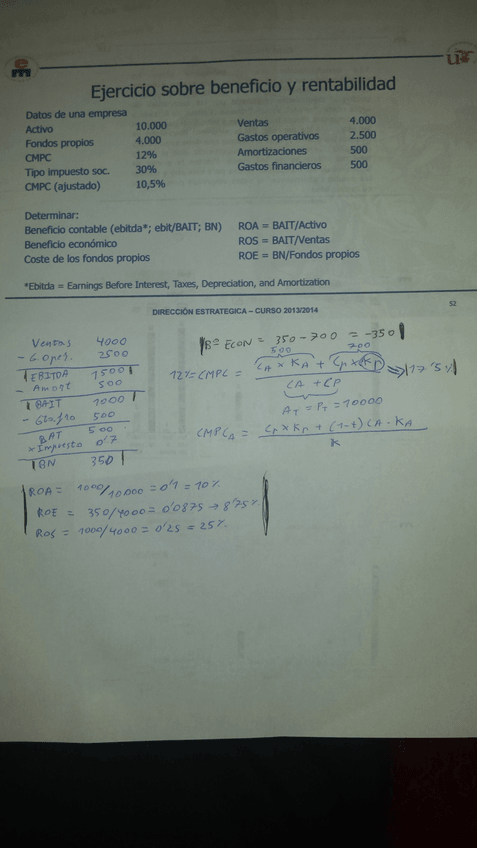 em
us
Ejercicio sobre beneficio y rentabilidad
Datos de una empresa
Activo 10.000
Fondos propios 4.000
CMPC 12%
Tipo impuesto soc. 30%
CMPC (ajustado) 10,5%
Ventas 4.000
Gastos operativos 2.500
Amortizaciones 500
Gastos financieros 500
Determinar:
Beneficio contable (ebitda*; ebit/BAIT; BN)
Beneficio económico
Coste de los fondos propios
ROA = BAIT/Activo
ROS = BAIT/Ventas
ROE = BN/Fondos propios
*Ebitda = Earnings Before Interest, Taxes, Depreciation, and Amortization
52
DIRECCIÓN ESTRATEGICA – CURSO 2013/2014
Ventas 4000
- G. Oper. 2500
EBITDA 1500
- Amort 500
BAIT 1000
- Gtosfro 500
BAT 500
x Impuesto 0'7
BN 350
Bº ECON = 350 - 700 = -350
500 700
12% = CMPC = CA x KA + CP x KP => 17'5%
CA + CP
AT = PT = 10000
CMPCA = CP x KP + (1-t) CA · KA
K
ROA = 1000/10.000 = 0'1 = 10%
ROE = 350/4000 = 0'0875 → 8'75%
ROS = 1000/4000 = 0'25 = 25%